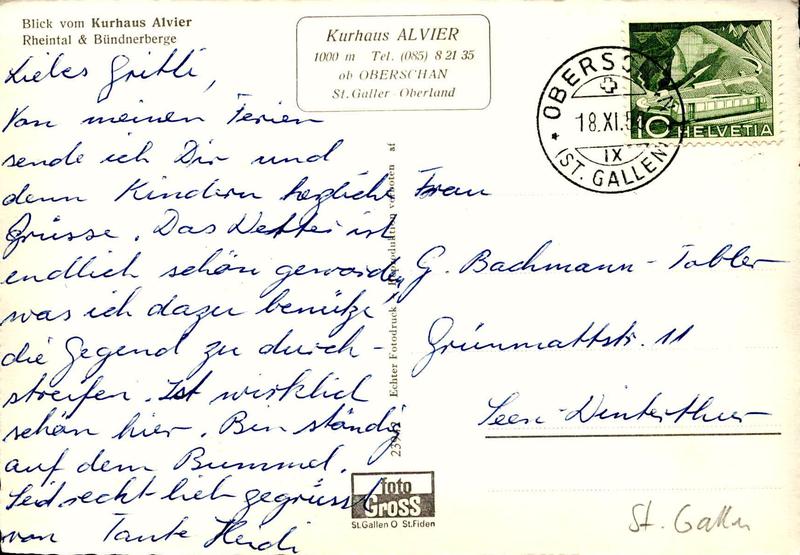 Blick vom Kurhaus Alvier
Rheintal & Bündnerberge
Kurhaus ALVIER
1000 m Tel. (085) 8 21 35
ob OBERSCHAN
St. Galler Oberland
OBERSCHAN
18.XI.54
IX
(ST. GALLEN)
10 HELVETIA
Liebes Gritli,
Von meinen Ferien
sende ich Dir und
denn Kindern herzliche
Grüsse. Das Wetter ist
endlich schön geworden
was ich dazu benütze,
die Gegend zu durch-
streifen. Ist wirklich
schön hier. Bin ständig
auf dem Bummel.
Seid recht lieb gegrüsst
von Tante Heidi
23942 Echter Fotodruck - Reproduktion verboten af
foto
Gross
St.Gallen O St.Fiden
Frau
G. Bachmann-Tobler
Grünmattstr. 11
Seen-Winterthur
St. Gallen